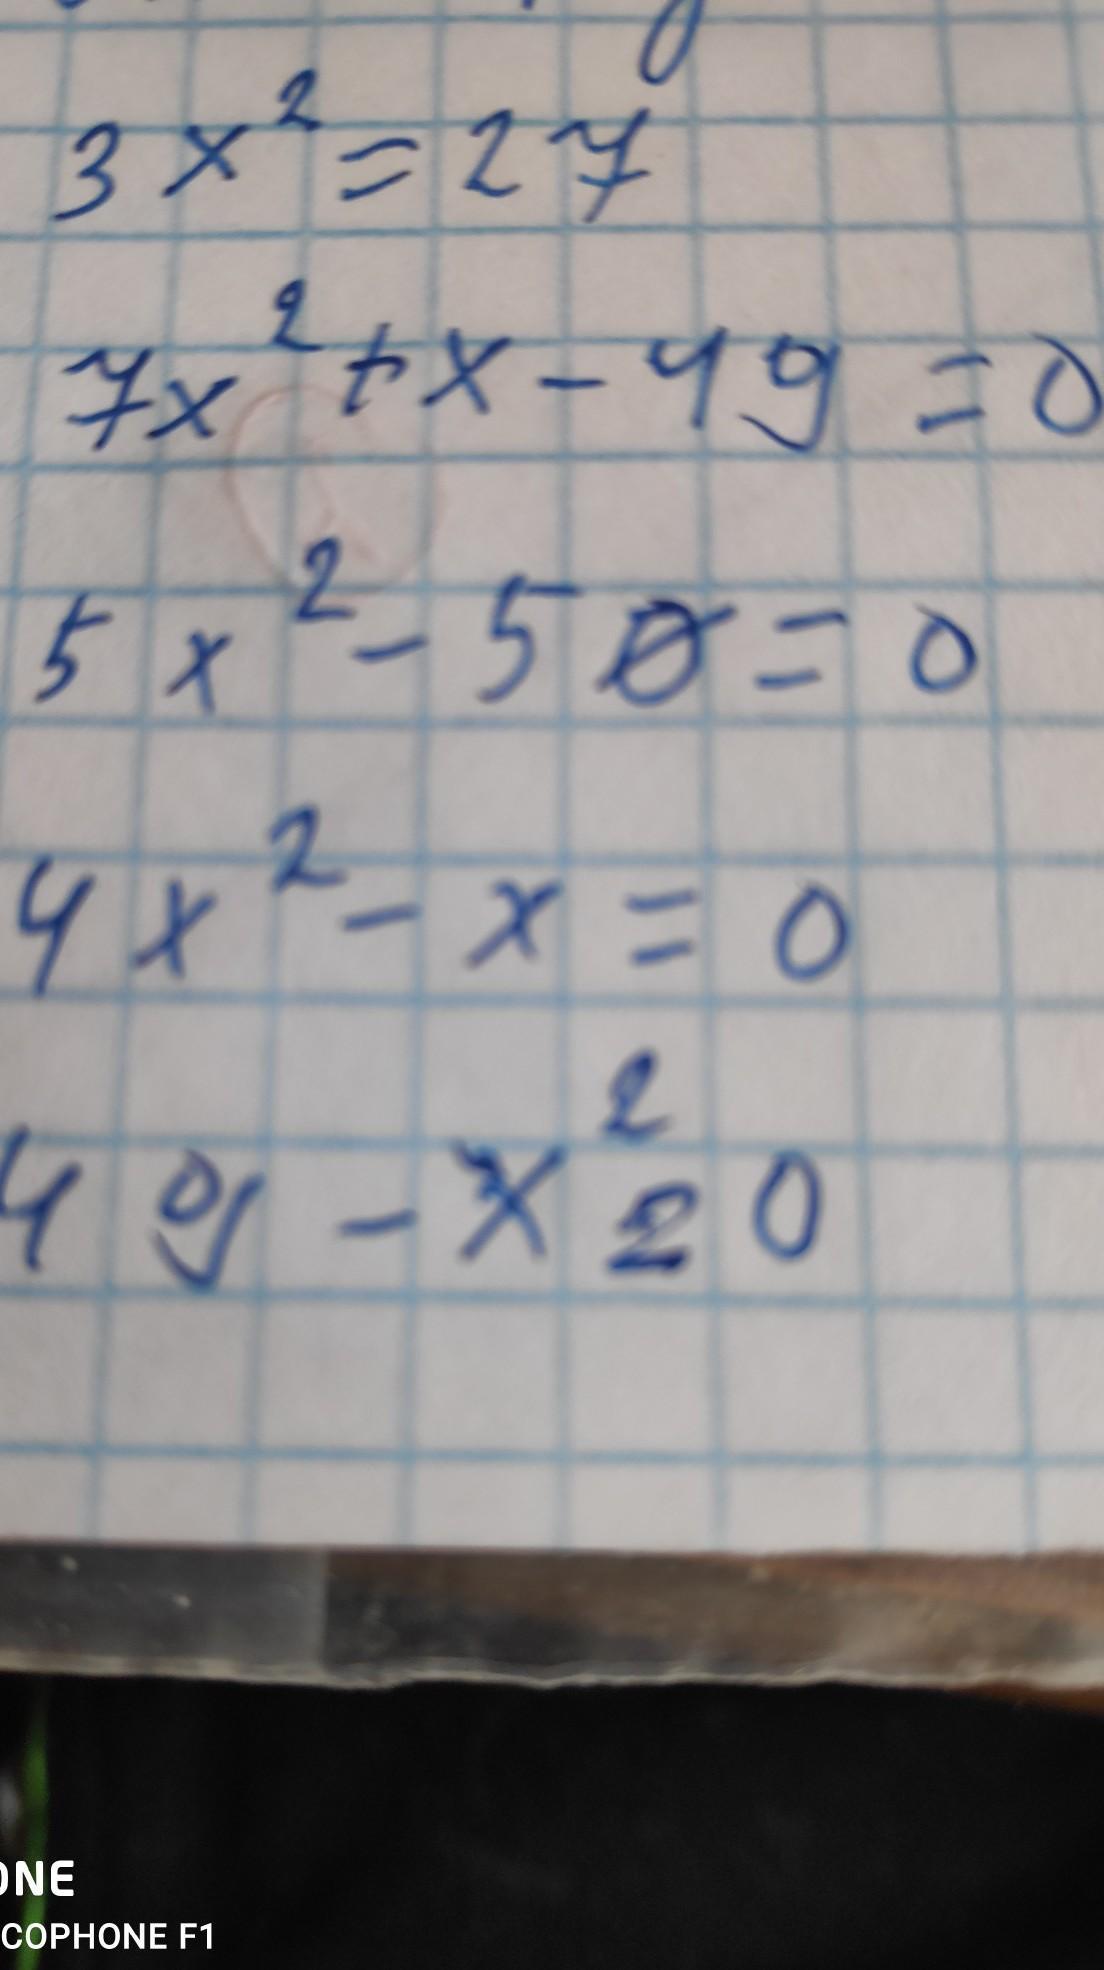 3x² = 27
7x² + x - 49 = 0
5x² - 50 = 0
4x² - x = 0
49 - x² = 0
ONE
COPHONE F1